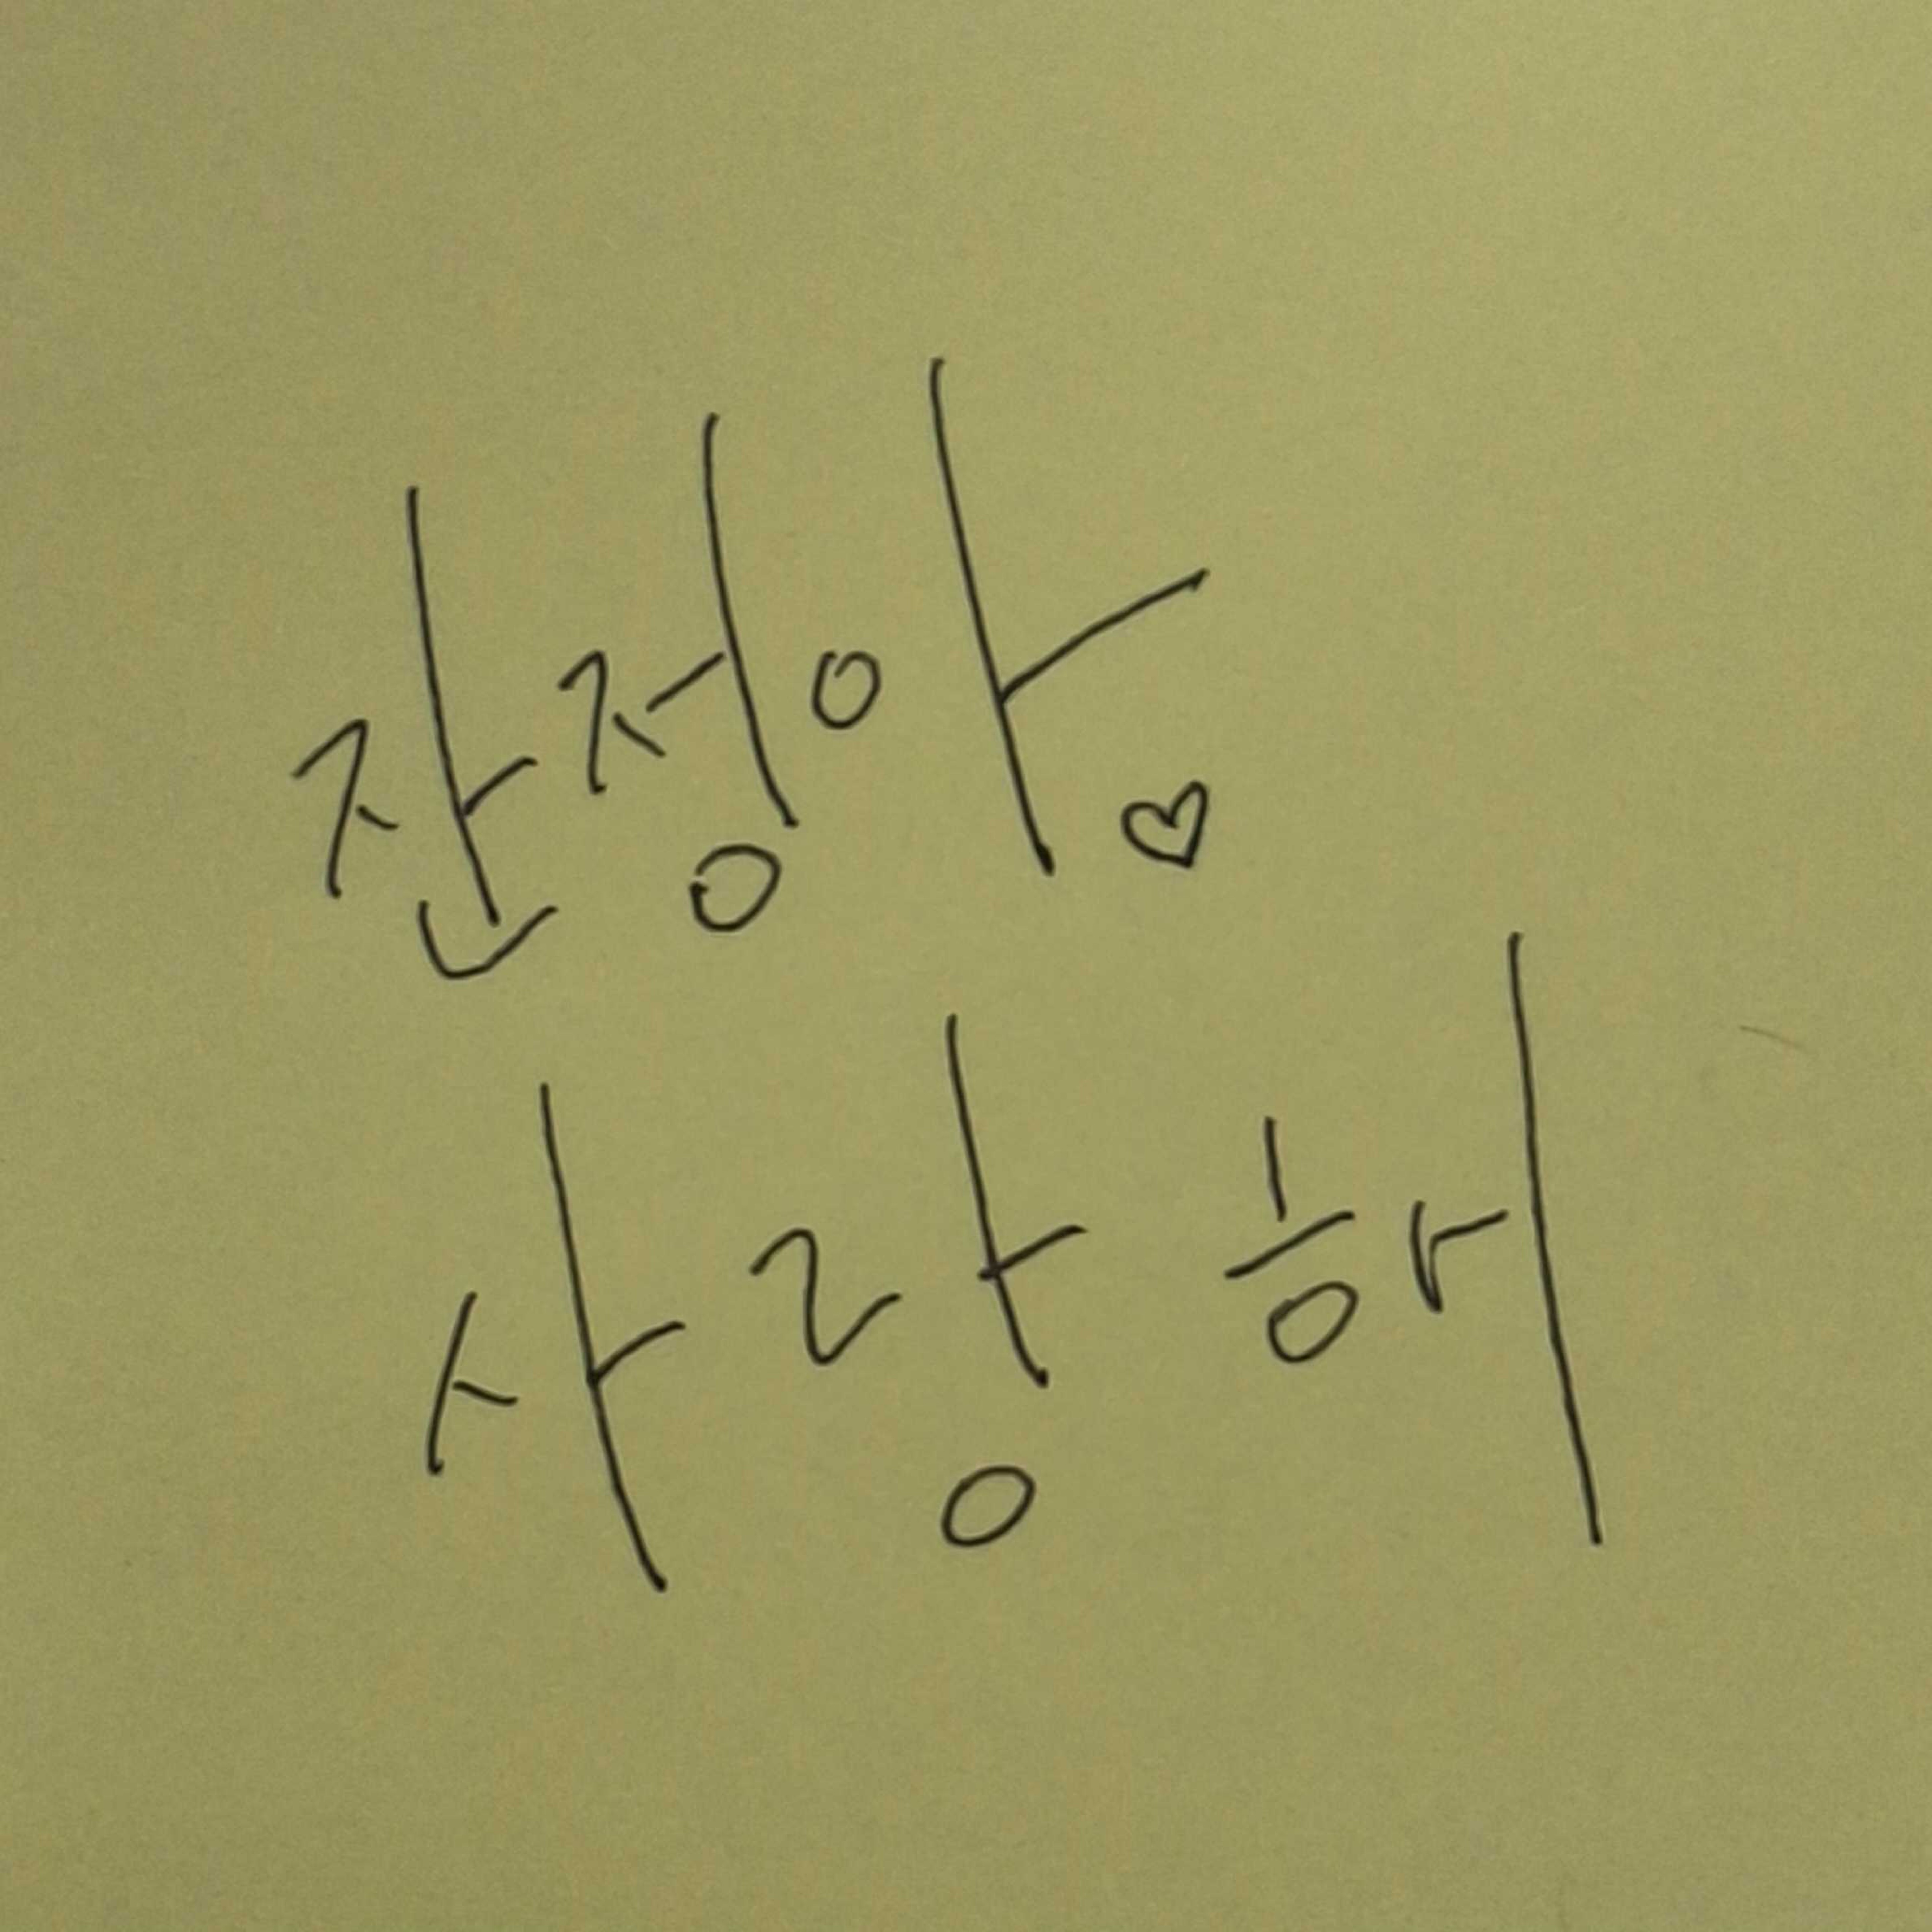 잔정아♡
사랑해